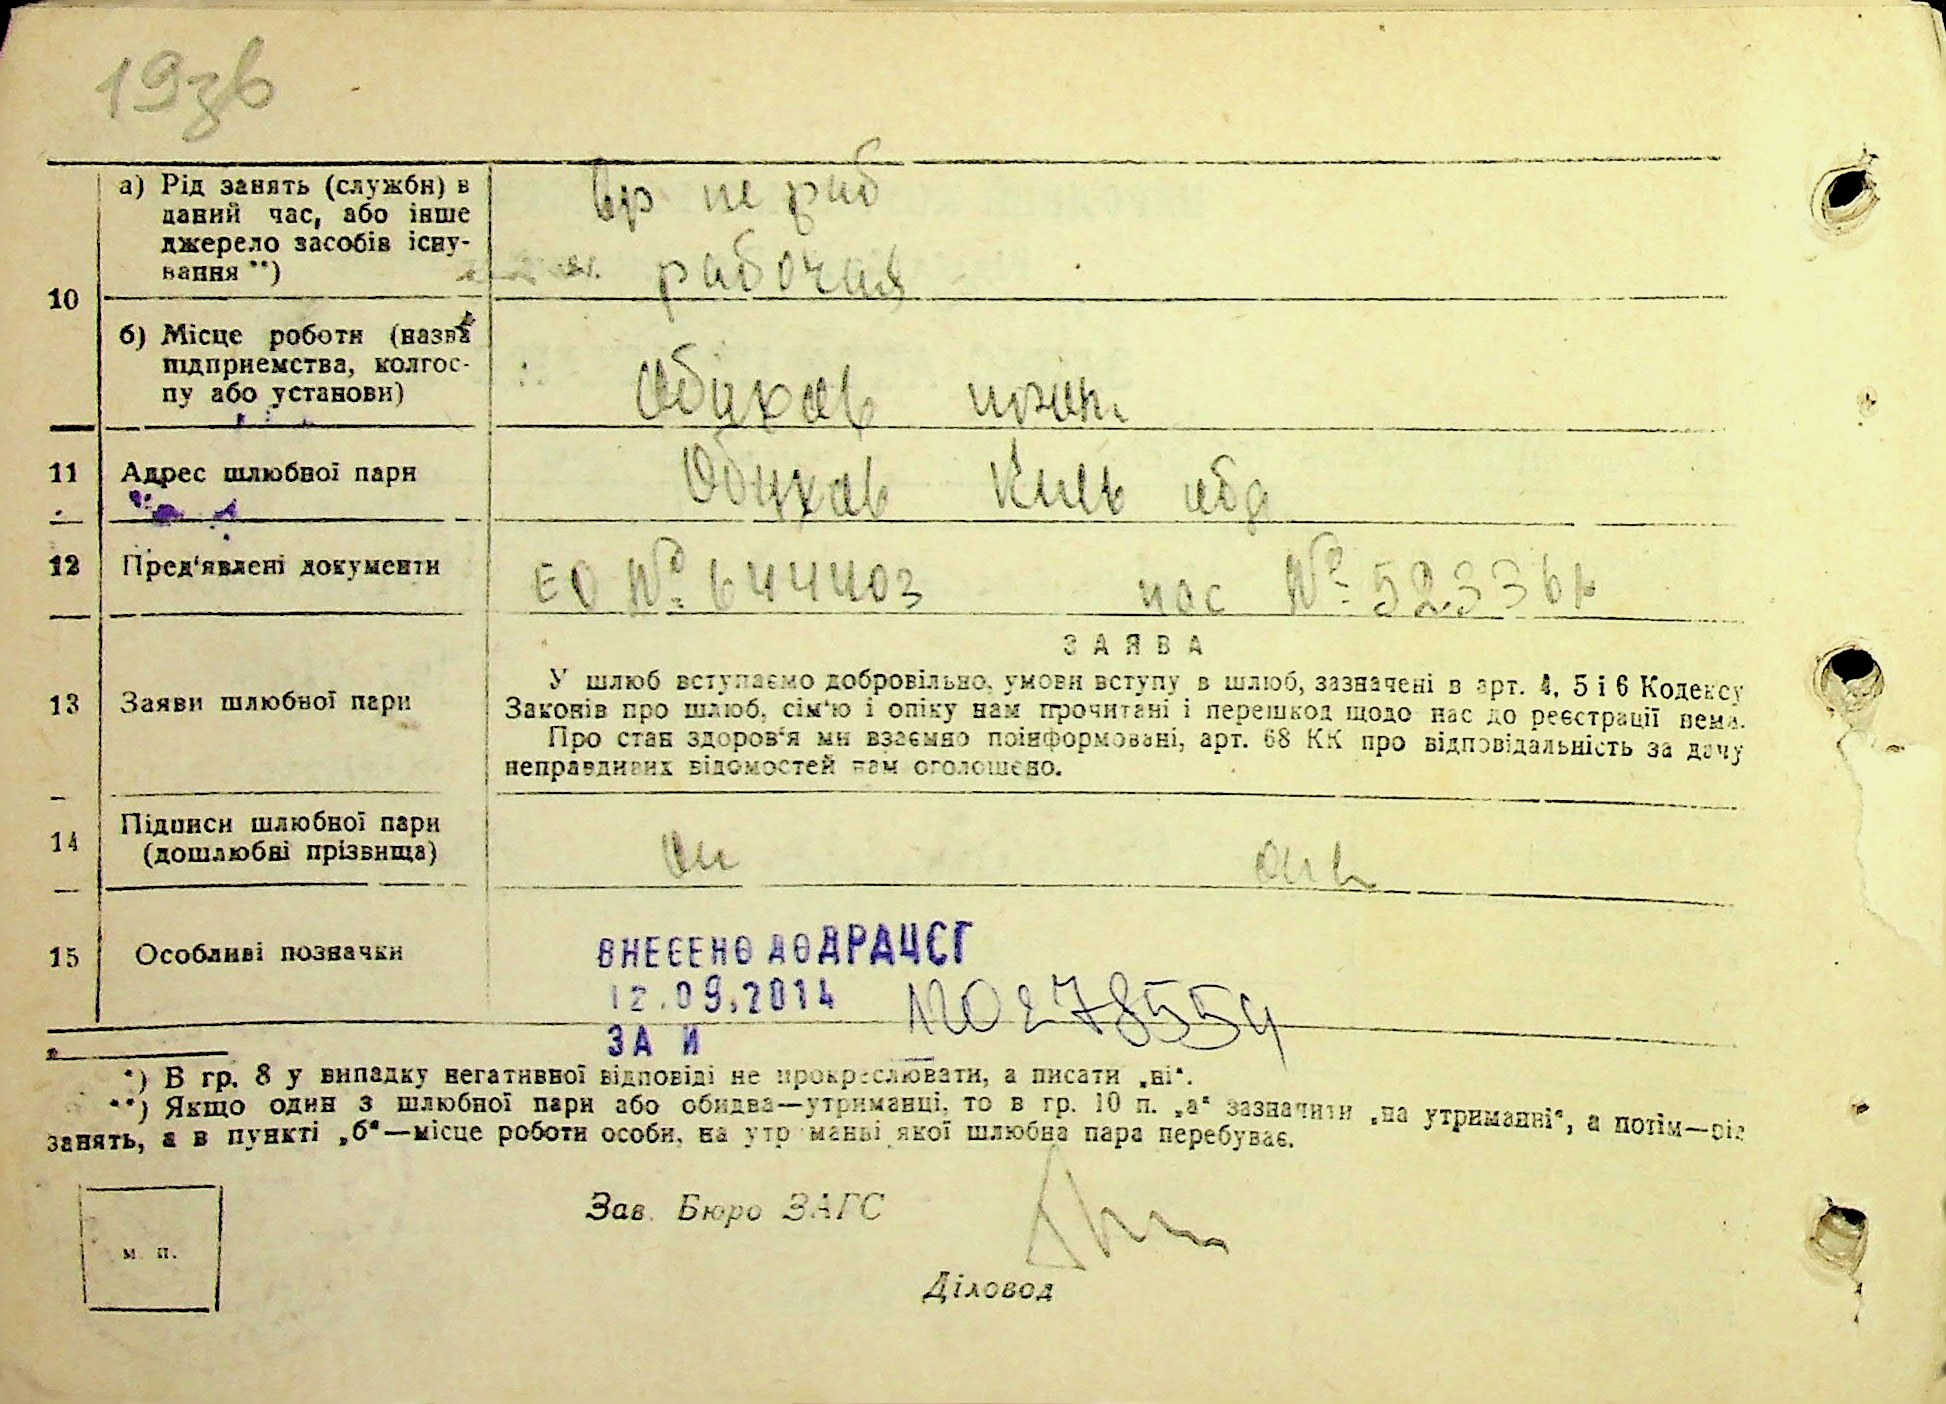 19зв
10
а) Рід занять (служби) в
даний час, або інше
джерело засобів існу-
вання **)
вр не раб
рабочая
б) Місце роботи (назва
підприємства, колгос-
пу або установи)
Обухов
11
Адрес шлюбної пари
Обухов Киев обл
12
Пред'явлені документи
ЕО № 644403 пас №
13
Заяви шлюбної пари
ЗАЯВА
У шлюб вступаємо добровільно, умови вступу в шлюб, зазначені в арт. 4, 5 і 6 Кодексу
Законів про шлюб, сім'ю і опіку нам прочитані і перешкод щодо нас до реєстрації нема.
Про стан здоров'я ми взаємно поінформовані, арт. 68 КК про відповідальність за дачу
неправдивих відомостей нам оголошено.
14
Підписи шлюбної пари
(дошлюбні прізвища)
15
Особливі позначки
ВНЕСЕНО ДО ДРАЦСГ
12.09.2014
ЗА И
№0278554
*) В гр. 8 у випадку негативної відповіді не прокреслювати, а писати „ні“.
**) Якщо один з шлюбної пари або обидва—утриманці, то в гр. 10 п. „а“ зазначити „на утриманні“, а потім—рід
занять, а в пункті „б“—місце роботи особи, на утриманні якої шлюбна пара перебуває.
Зав. Бюро ЗАГС
м. п.
Діловод